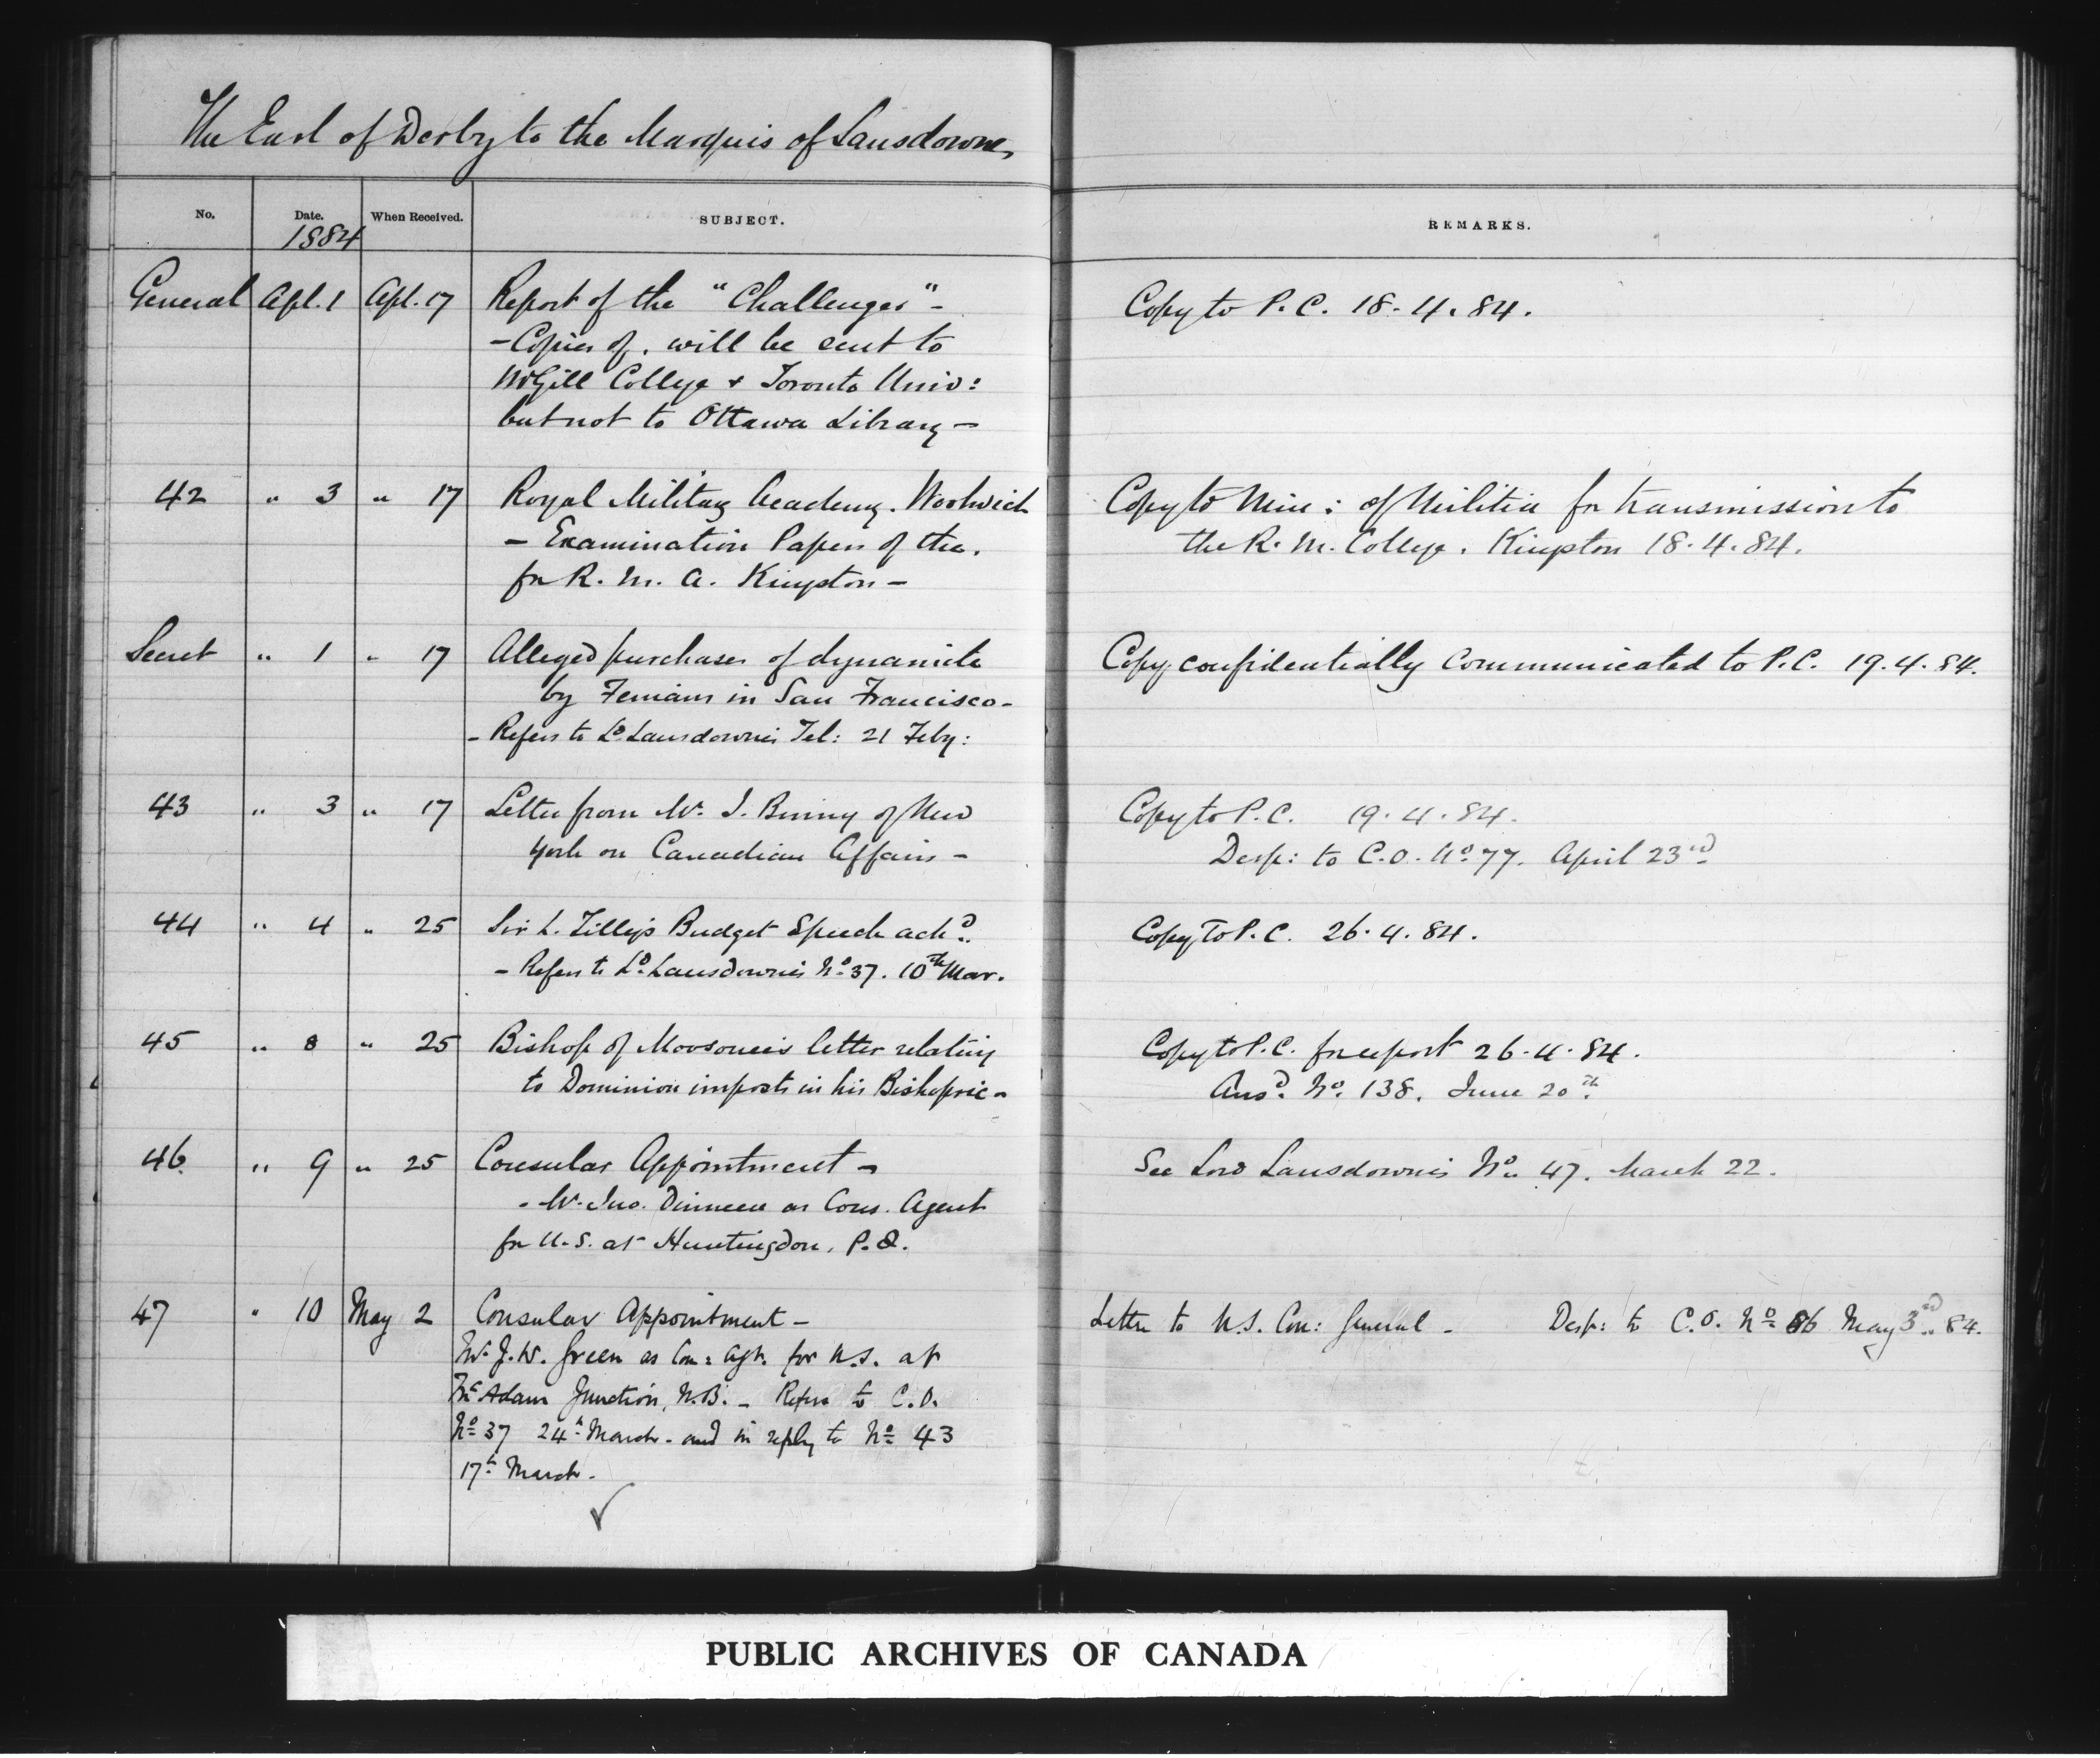 The Earl of Derby to the Marquis of Lansdowne,
No. Date. When Received. SUBJECT. REMARKS.
1884
General Apl. 1 Apl. 17 Report of the "Challenger" - Copy to P.C. 18.4.84.
- Copies of, will be sent to
McGill College & Toronto Univ:
but not to Ottawa Library -
42 " 3 " 17 Royal Military Academy. Woolwich Copy to Min: of Militia for transmission to
- Examination Papers of the, the R.M. College. Kingston 18.4.84.
for R.M.A. Kingston -
Secret " 1 " 17 Alleged purchases of dynamite Copy confidentially communicated to P.C. 19.4.84.
by Fenians in San Francisco -
- Refers to Ld. Lansdowne's Tel: 21 Feby:
43 " 3 " 17 Letter from Mr. I. Binny of New Copy to P.C. 19.4.84.
York on Canadian Affairs - Desp: to C.O. No. 77. April 23rd
44 " 4 " 25 Sir L. Tilley's Budget Speech ackd. Copy to P.C. 26.4.84.
- Refers to Ld. Lansdowne's No. 37. 10th Mar.
45 " 8 " 25 Bishop of Moosonee's letter relating Copy to P.C. for report 26.4.84.
to Dominion imposts in his Bishopric - Ansd. No. 138. June 20th.
46. " 9 " 25 Consular Appointment - See Lord Lansdowne's No. 47. March 22.
- Mr. Jno. Dinneen as Cons. Agent
for U.S. at Huntingdon, P.Q.
47 " 10 May 2 Consular Appointment - Letter to U.S. Con: General - Desp: to C.O. No. 86 May 3rd. 84.
Mr. J.W. Green as Con: Agt. for U.S. at
McAdam Junction, N.B. - Refers to C.O.
No. 37 24th March - and in reply to No. 43
17th March.
PUBLIC ARCHIVES OF CANADA